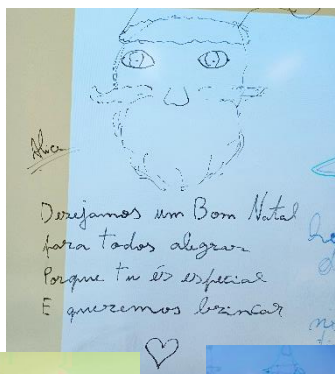 Alice
Desejamos um Bom Natal
para todos alegrar
Porque tu és especial
E queremos brincar